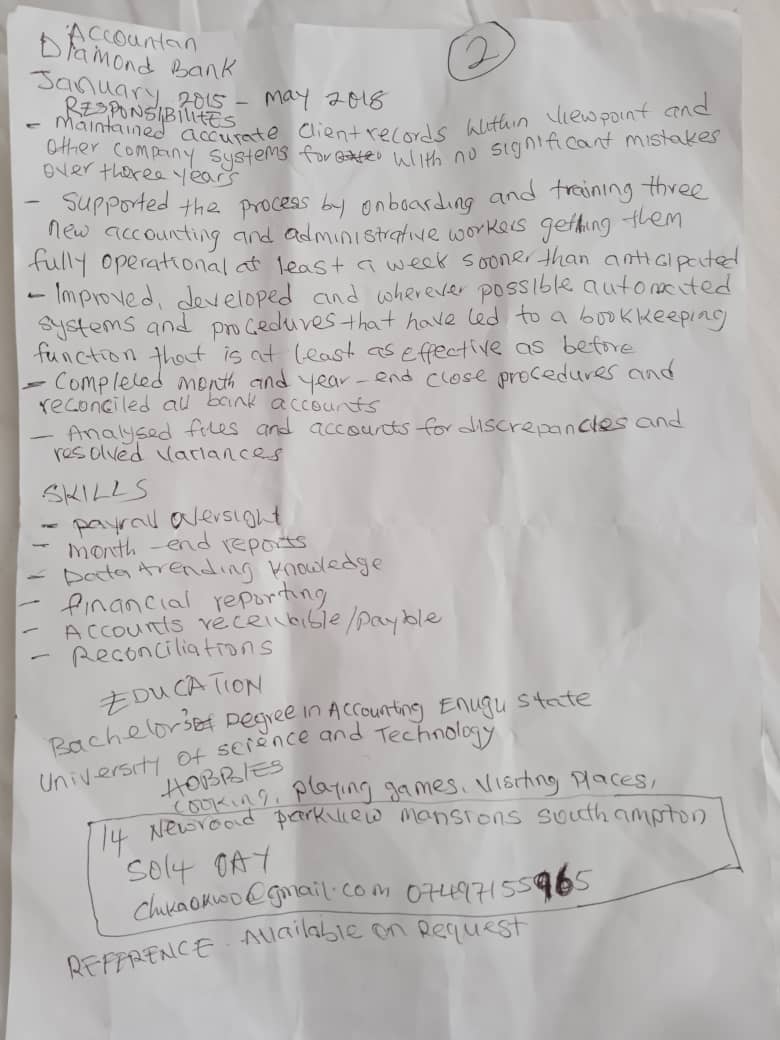 2
Accountan
Diamond Bank
January 2015 - May 2018
RESPONSIBILITES
- Maintained accurate Client records within Viewpoint and
other company systems for with no significant mistakes
over theree years
- Supported the process by onboarding and training three
new accounting and administrative workers getting them
fully operational at least a week sooner than anticipated
- Improved, developed and wherever possible automated
systems and procedures that have led to a bookkeeping
function that is at least as effective as before
- Completed month and year-end close procedures and
reconciled all bank accounts
- Analysed files and accounts for discrepancies and
resolved variances
SKILLS
- payroll oversight
- month-end reports
- Data trending knowledge
- financial reporting
- Accounts receivbible/payble
- Reconciliations
EDUCATION
Bachelor's Degree in Accounting Enugu State
University of science and Technology
HOBBIES
cooking, playing games, visiting places,
14 Newroad parkview mansions southampton
SO14 0AY
chukaokwo@gmail.com 07497155965
REFERENCE - Available on Request